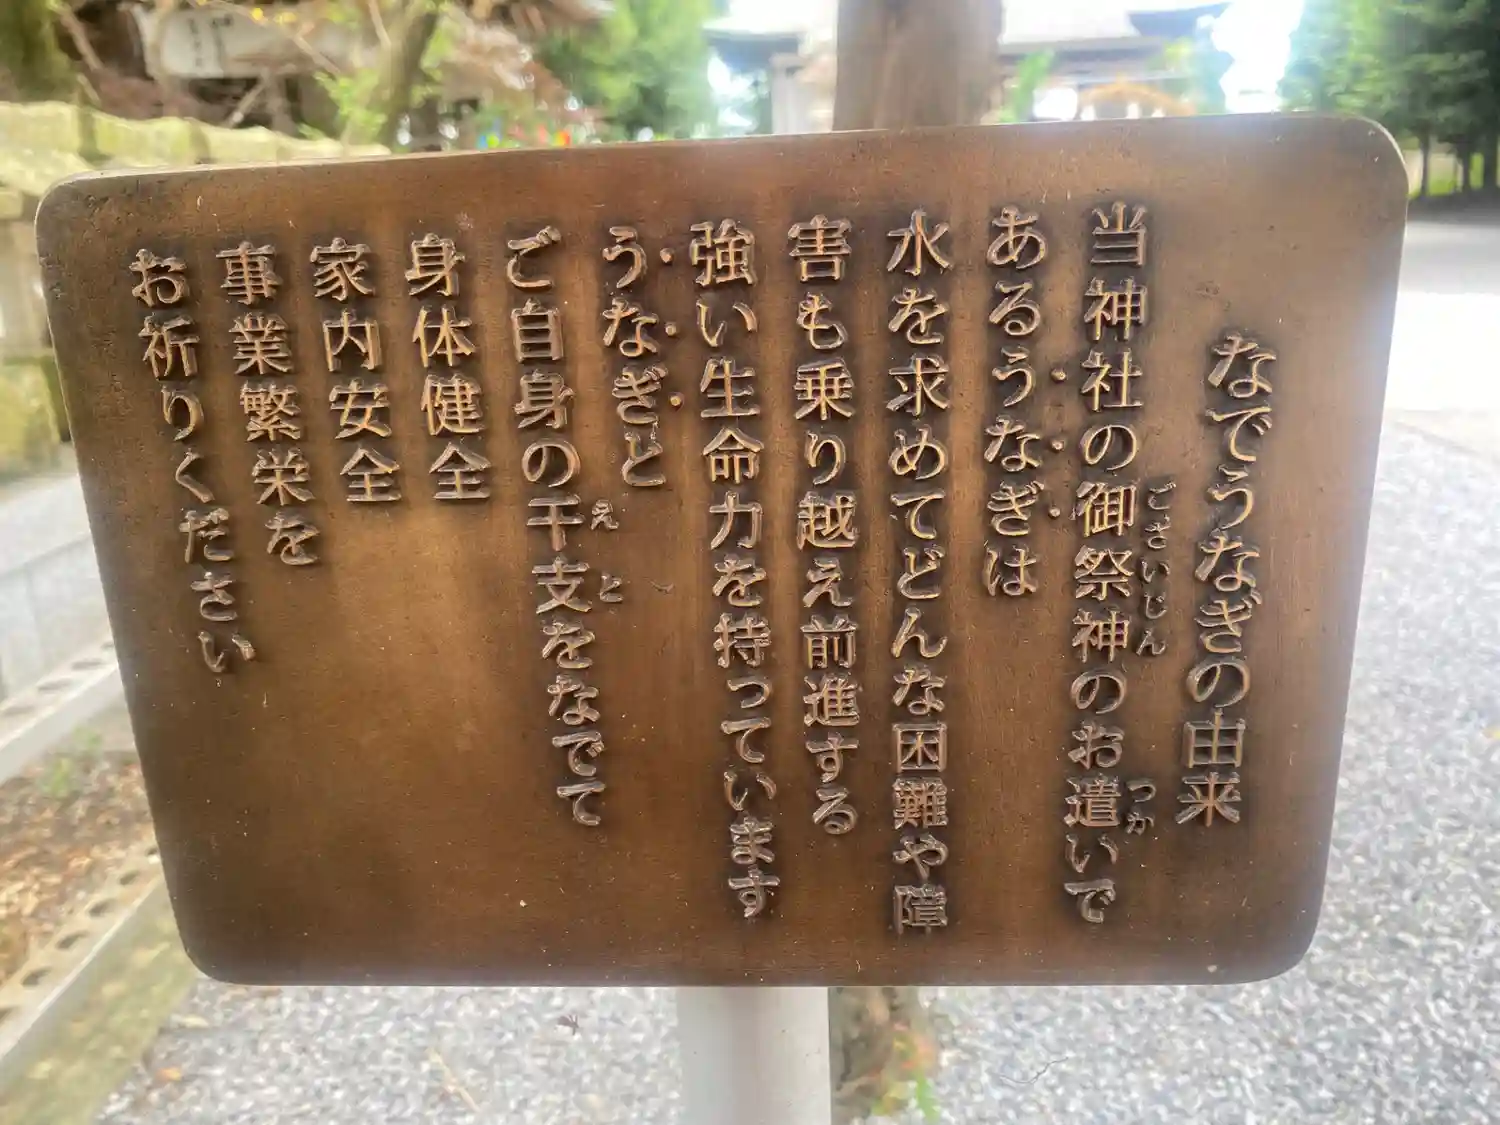 なでうなぎの由来
当神社の御祭神のお遣いで
ごさいじん
つか
あるうなぎは
水を求めてどんな困難や障
害も乗り越え前進する
強い生命力を持っています
うなぎと
ご自身の干支をなでて
えと
身体健全
家内安全
事業繁栄を
お祈りください